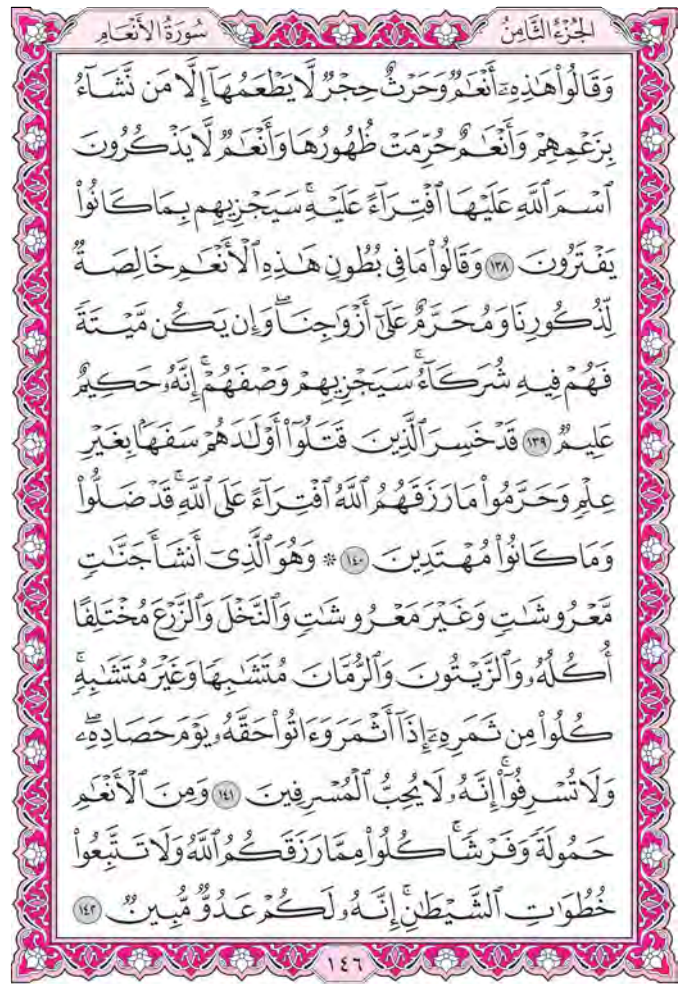 الجُزْءُ الثَّامِنُ سُورَةُ الأَنْعَامِ
وَقَالُواْ هَٰذِهِۦٓ أَنْعَٰمٌ وَحَرْثٌ حِجْرٌ لَّا يَطْعَمُهَآ إِلَّا مَن نَّشَآءُ
بِزَعْمِهِمْ وَأَنْعَٰمٌ حُرِّمَتْ ظُهُورُهَا وَأَنْعَٰمٌ لَّا يَذْكُرُونَ
ٱسْمَ ٱللَّهِ عَلَيْهَا ٱفْتِرَآءً عَلَيْهِ ۚ سَيَجْزِيهِم بِمَا كَانُواْ
يَفْتَرُونَ ١٣٨ وَقَالُواْ مَا فِى بُطُونِ هَٰذِهِ ٱلْأَنْعَٰمِ خَالِصَةٌ
لِّذُكُورِنَا وَمُحَرَّمٌ عَلَىٰٓ أَزْوَٰجِنَا ۖ وَإِن يَكُن مَّيْتَةً
فَهُمْ فِيهِ شُرَكَآءُ ۚ سَيَجْزِيهِمْ وَصْفَهُمْ ۚ إِنَّهُۥ حَكِيمٌ
عَلِيمٌ ١٣٩ قَدْ خَسِرَ ٱلَّذِينَ قَتَلُوٓاْ أَوْلَٰدَهُمْ سَفَهًۢا بِغَيْرِ
عِلْمٍ وَحَرَّمُواْ مَا رَزَقَهُمُ ٱللَّهُ ٱفْتِرَآءً عَلَى ٱللَّهِ ۚ قَدْ ضَلُّواْ
وَمَا كَانُواْ مُهْتَدِينَ ١٤٠ ۞ وَهُوَ ٱلَّذِىٓ أَنشَأَ جَنَّٰتٍ
مَّعْرُوشَٰتٍ وَغَيْرَ مَعْرُوشَٰتٍ وَٱلنَّخْلَ وَٱلزَّرْعَ مُخْتَلِفًا
أُكُلُهُۥ وَٱلزَّيْتُونَ وَٱلرُّمَّانَ مُتَشَٰبِهًا وَغَيْرَ مُتَشَٰبِهٍ ۚ
كُلُواْ مِن ثَمَرِهِۦٓ إِذَآ أَثْمَرَ وَءَاتُواْ حَقَّهُۥ يَوْمَ حَصَادِهِۦ ۖ
وَلَا تُسْرِفُوٓاْ ۚ إِنَّهُۥ لَا يُحِبُّ ٱلْمُسْرِفِينَ ١٤١ وَمِنَ ٱلْأَنْعَٰمِ
حَمُولَةً وَفَرْشًا ۚ كُلُواْ مِمَّا رَزَقَكُمُ ٱللَّهُ وَلَا تَتَّبِعُواْ
خُطُوَٰتِ ٱلشَّيْطَٰنِ ۚ إِنَّهُۥ لَكُمْ عَدُوٌّ مُّبِينٌ ١٤٢
١٤٦